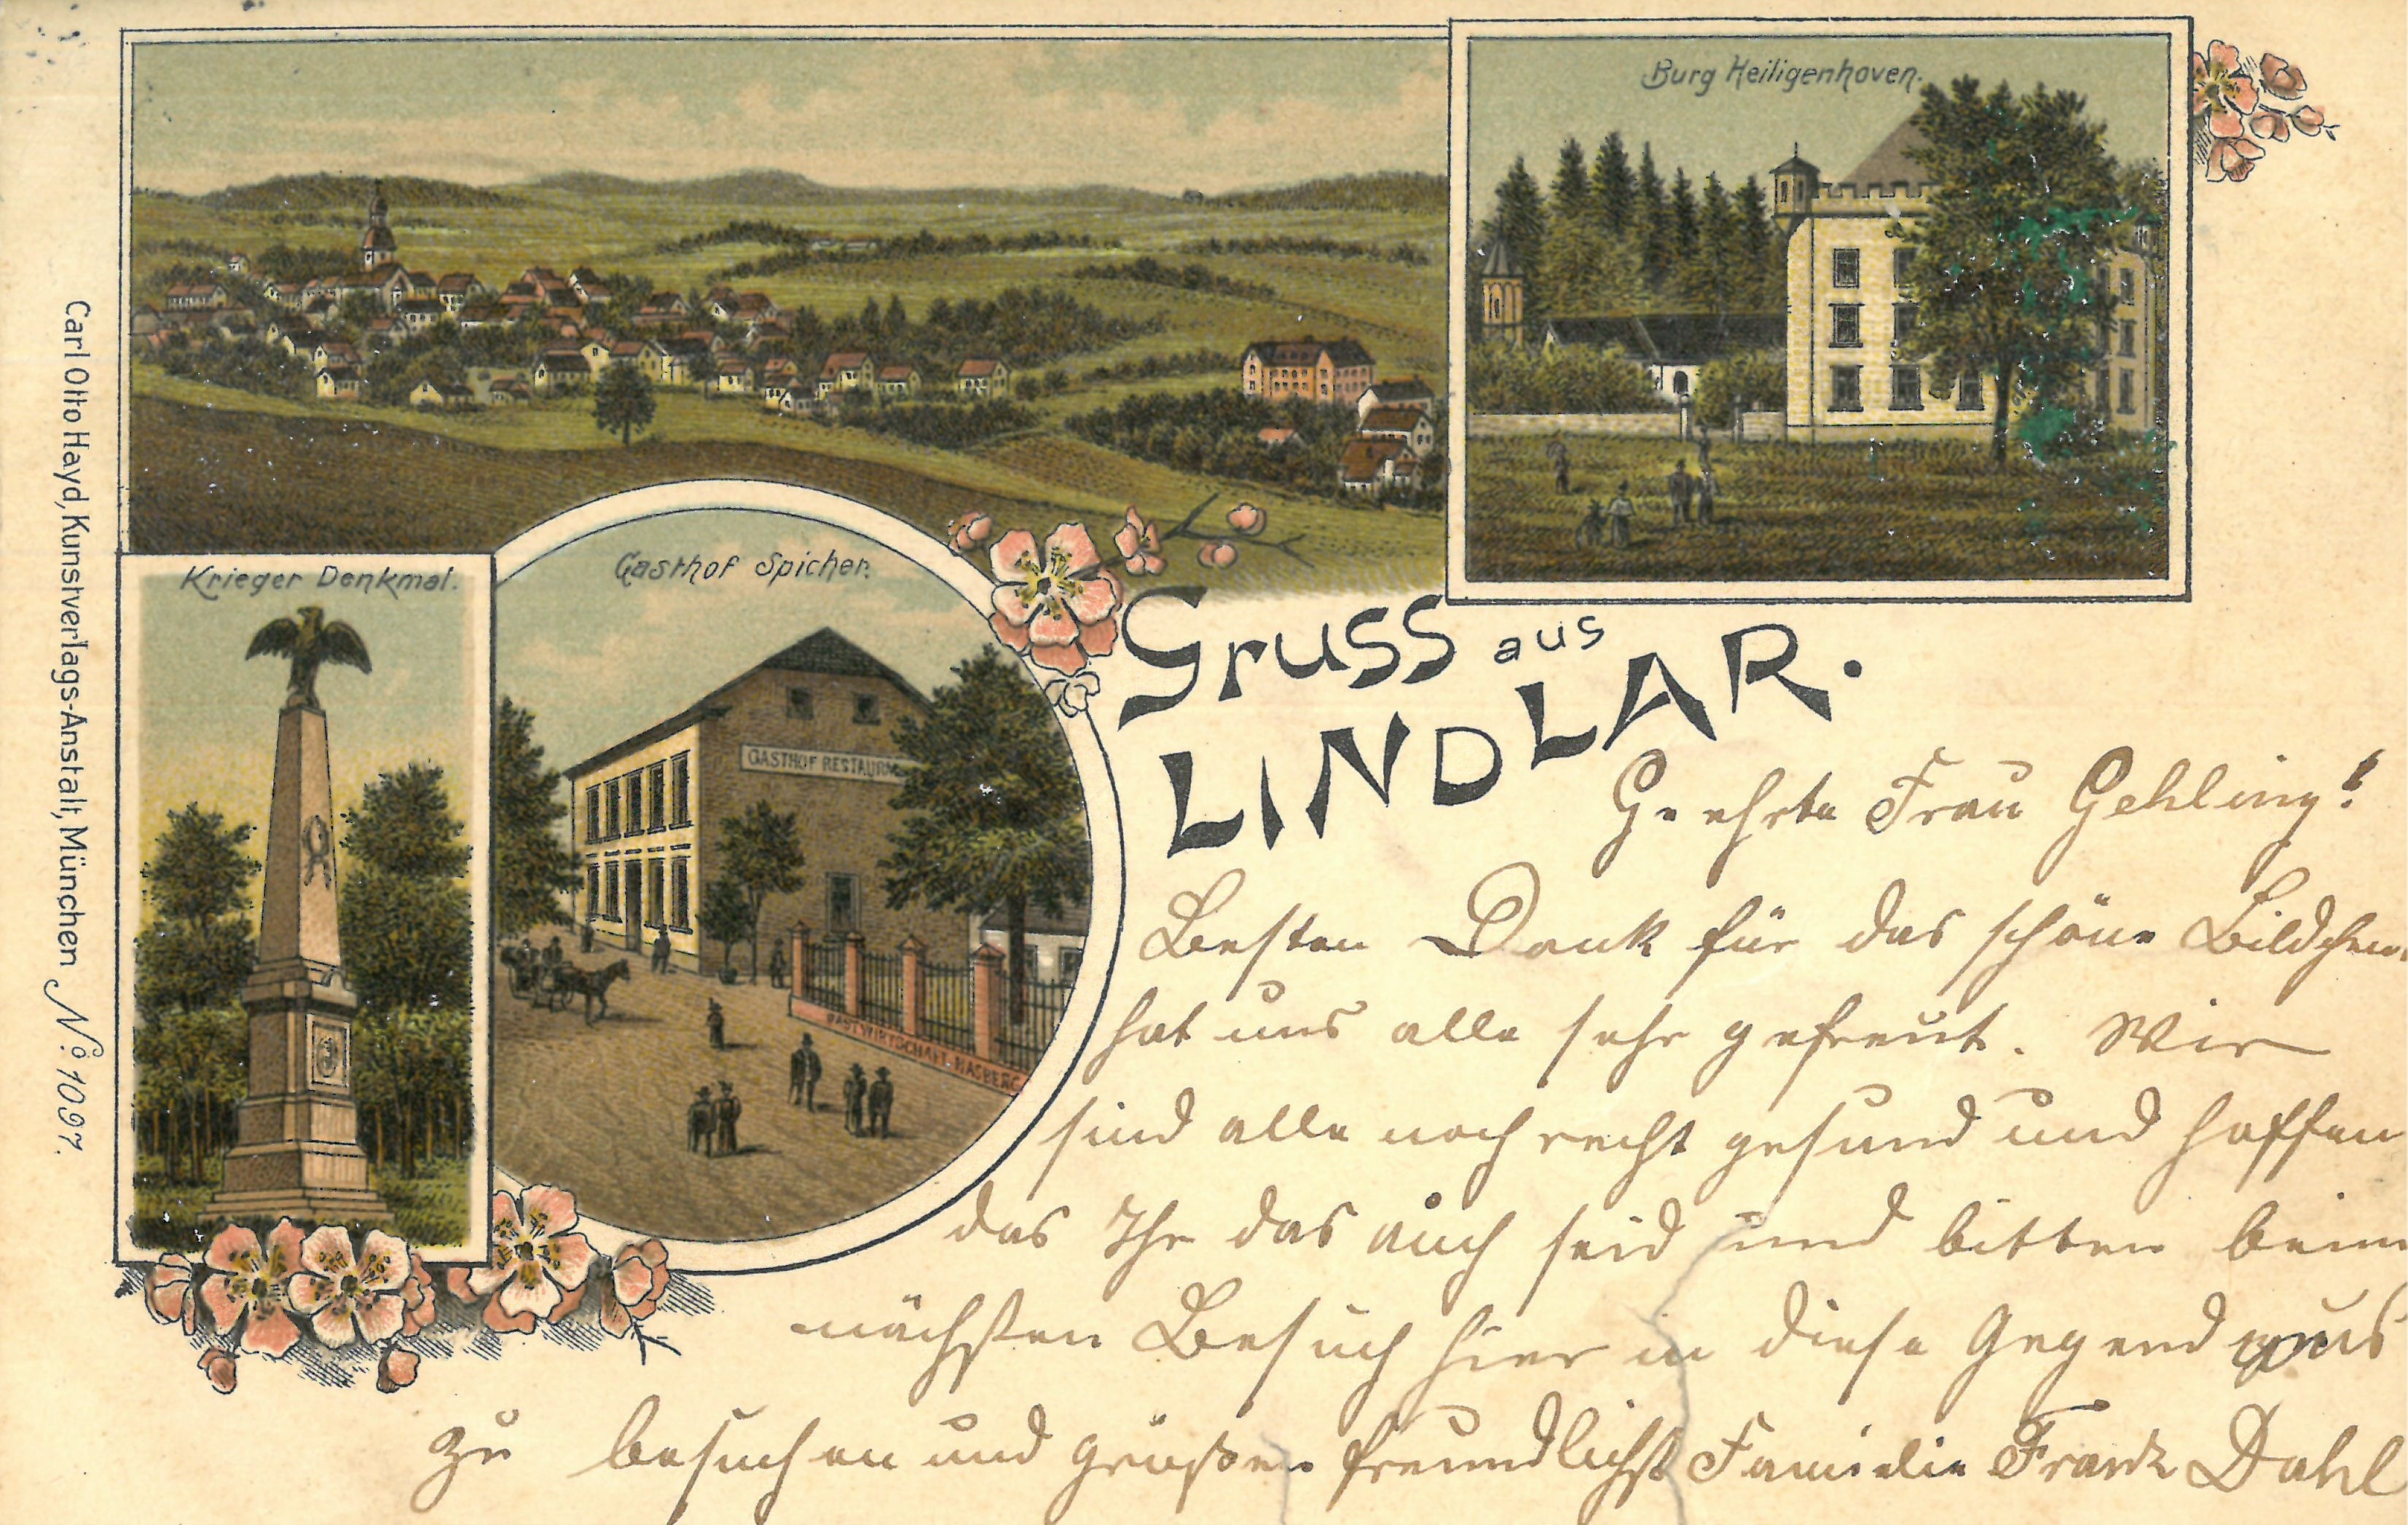 Burg Heiligenhoven.
Krieger Denkmal.
Gasthof Spicher.
GASTHOF RESTAUR
GASTWIRTSCHAFT HASBERG
Gruss aus
LINDLAR.
Geehrte Frau Gehling!
Besten Dank für das schöne Bildchen,
hat uns alle sehr gefreut. Wir
sind alle noch recht gesund und hoffen
das Ihr das auch seid und bitten beim
nächsten Besuch hier in diese Gegend uns
zu besuchen und grüßen freundlichst Familie Frank Dahl
Carl Otto Hayd, Kunstverlags-Anstalt, München No. 1097.